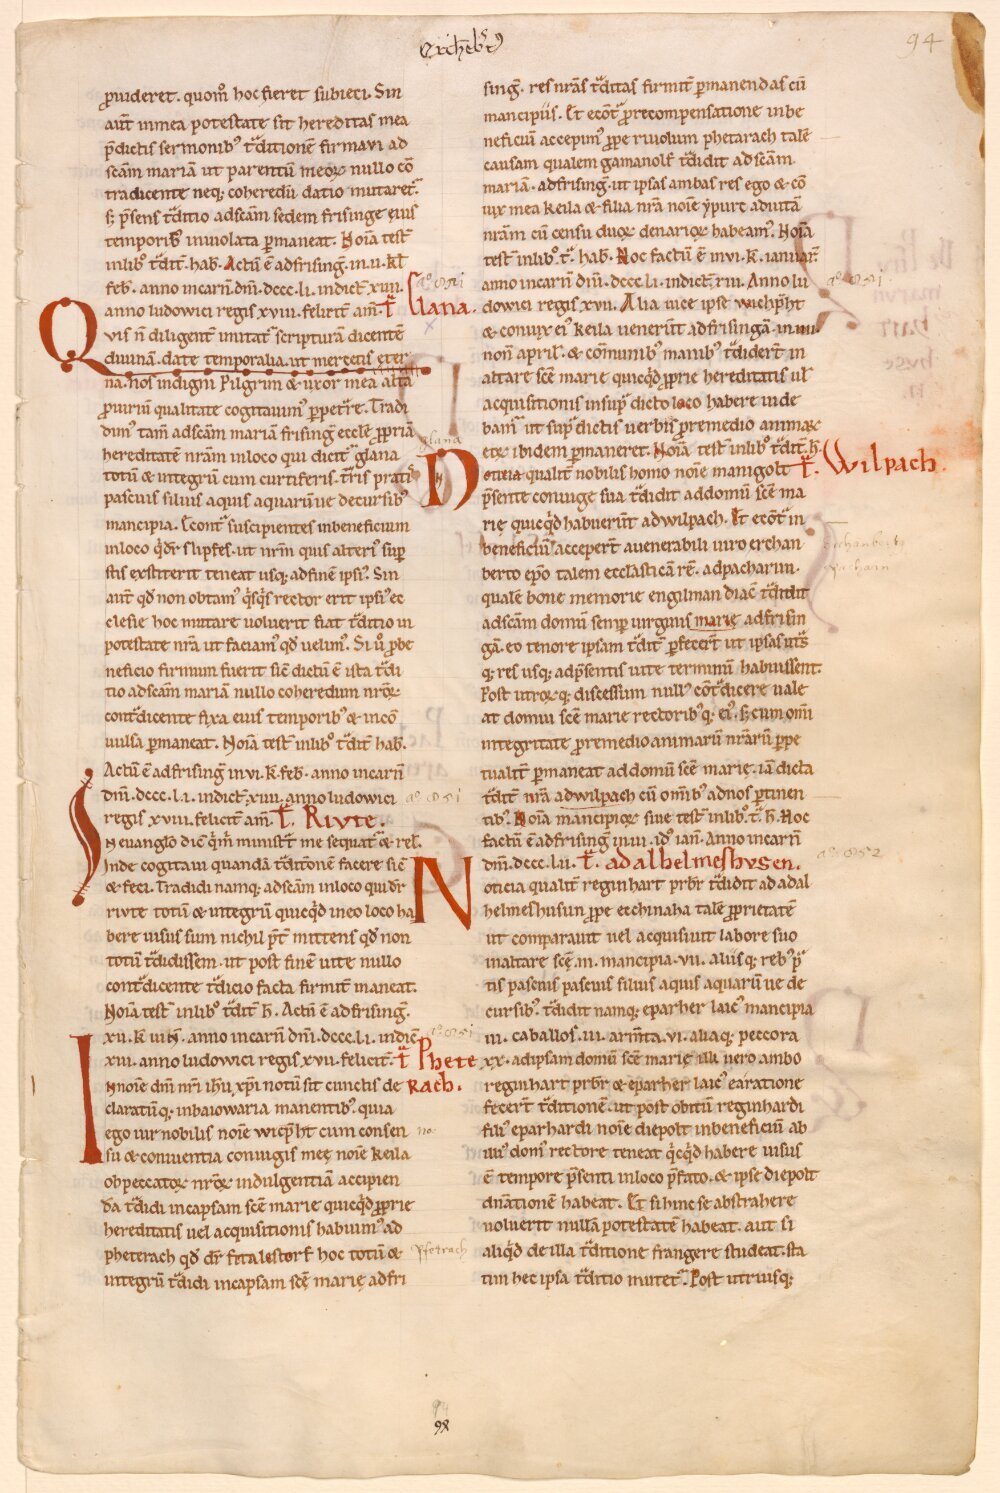 Erchēbᵗ⁹
94
ꝓuideret. quom̊ hoc fieret subieci. Sin
aut̄ in mea potestate sit hereditas mea
p̄dictis sermonibꝰ t̄ditionē firmavi ad
scām mariā ut parentū meoꝝ nullo cō
tradicente neqꝫ coheredū datio mutaret᷑
sꝫ p̄sens t̄ditio ad scām sedem frisinge eius
temporibꝰ inuiolata ꝑmaneat. Noīa test̄
in libꝰ t̄dit̄. hab̄. Actū ē ad frisinḡ. in .ii. kl̄
feb̄. anno incarn̄. dn̄i. dccc. li. indict̄. xiiii.
anno ludowici regis xviii. felicit̄ am̄. t̄ Glana.
aº 851
Qvis n̄ diligent̄ imitat᷑ scripturā dicentē
diuinā. date temporalia. ut mercetis eter
na. nos indigni Pilgrim & uxor mea alta
ꝓ uiriū qualitate cogitauimꝰ ꝑpet̄re. Tradi
dimꝰ tam̄ ad scām mariā frisinḡ ecclē ꝓpriā
hereditatē nr̄am in loco qui dicit᷑ glana
glana
totū & integrū cum curtiferis. t̄ris prati
pascuis siluis aquis aquarū ue decursibꝰ
mancipia. Econt᷑ suscipientes in beneficium
in loco q̄dr̄ slipfes. ut nr̄m quis alteri suꝑ
stis exstiterit teneat usqꝫ ad finē ipsiꝰ. Sin
aut̄ qd̄ non obtamꝰ q̄sq̄s rector erit ipsiꝰ ec
clesie hoc mutare uoluerit fiat t̄ditio in
potestate nr̄a ut faciamꝰ qd̄ uelimꝰ. Si ů ꝓ be
neficio firmum fuerit sic̄ dictū ē ista t̄di
tio ad scām mariā nullo coheredum nr̄oꝝ
cont̄dicente fixa eius temporibꝰ & incō
uulsa ꝑmaneat. Noīa test̄ in libꝰ t̄dit̄ hab̄.
Actū ē ad frisinḡ in vi. k̄. feb̄. anno incarn̄
dn̄i. dccc. l. i. indict̄. xiiii. anno ludowici
aº 851
regis xviii. felicit̄ am̄. t̄. Rivte.
Sn euanglio diē q̄ m̄ ministr̄t me sequat᷑ & rel̄.
Inde cogitaui quandā t̄ditōnē facere sic̄
& feci. Tradidi namqꝫ ad scām in loco qui dr̄
rivte totū & integrū quicq̄d in eo loco ha
bere uisus sum nichil p̄t̄ mittens qd̄ non
totū t̄didissem. ut post finē uite nullo
cont̄dicente t̄dicio facta firmit̄ maneat.
Noīa test̄ in libꝰ t̄dit̄ h̄. Actū ē ad frisinḡ.
xii. k̄ iun̄. anno incarn̄ dn̄i. dccc. l. i. indic̄
aº 851
xiii. anno ludowici regis xvii. felicit̄. t̄ Phete
In noīe dn̄i nr̄i ih̄u xp̄i notū sit cunctis de rach.
claratūqꝫ in baiowaria manentibꝰ. quia
ego uir nobilis noīe wicp̄ht cum consen
su & conuentia coniugis meę noīe keila
ob peccatoꝝ nr̄oꝝ indulgentiā accipien
da t̄didi in capsam scē marie quicq̄d ꝓprie
hereditatis uel acquisitionis habuimꝰ ad
pheterach qd̄ dr̄ fetalestorf hoc totū &
Pfetrach
integrū t̄didi in capsam scę marię ad fri
sinḡ. res nr̄as t̄ditas firmit̄ ꝑmanendas cū
mancipiis. Et ecōt᷑ ꝓ recompensatione in be
neficiū accepimꝰ ꝓpe riuolum phetarach talē
causam qualem gamanolf t̄didit ad scām
mariā. ad frisinḡ. ut ipsas ambas res ego & cō
iux mea keila & filia nr̄a noīe ẏpurc ad uitā
nr̄am cū censu duoꝝ denarioꝝ habeamꝰ. Noīa
test̄ in libꝰ. t̄. hab̄. Hoc factū ē in vi. k̄. ianuar̄.
anno incarn̄ dn̄i. dccc. l. i. indict̄. xiii. Anno lu
aº 851
dowici regis xvii. Alia uice ipse wichp̄ht
& coniux eiꝰ keila uenerūt ad frisingā in iiii
non̄ april̄. & cōmunibꝰ manibꝰ t̄didert̄ in
altare scē marie quicq̄d ꝓprie hereditatis ul̄
acquisitionis insuꝑ dicto loco habere uide
bam̄ ut suꝑ dictis uerbis ꝓ remedio animaꝝ
etx̄ ibidem ꝑmaneret. Noīa test̄ in libꝰ t̄dit̄. h̄.
Noticia qualit̄ nobilis homo noīe manigolt t̄. Wilpach.
p̄sente coniuge sua t̄didit ad domū scē ma
rię quicq̄d habuerūt ad wilpach. Et ecōt᷑ in
beneficiū accepert̄ a uenerabili uiro erchan
Erchanbertꝰ
berto ep̄o talem ecclasticā rē. ad pacharun.
epacharn
qualē bone memorie engilman diac̄ t̄didit
ad scām domū semꝑ uirginis marię ad frisin
gā. eo tenore ipsam t̄dit̄ ꝑfecert̄ ut ipsas ut̄s
qꝫ res usqꝫ ad p̄sentis uite terminū habuissent.
Post utroꝝqꝫ discessum nullꝰ cōt̄dicere uale
at domui scē marie rectoribꝰqꝫ eiꝰ. sꝫ cum omī
integritate ꝓ remedio animarū nr̄arū ꝑpe
tualit̄ ꝑmaneat ad domū scē marię. iā dicta
t̄dit̄ nr̄a ad wilpach cū omībꝰ ad nos ꝑtinen
tibꝰ. Noīa mancipioꝝ siue test̄ in libꝰ. t̄. h̄. Hoc
factū ē ad frisinḡ in iii. idꝰ ian̄. Anno incarn̄
dn̄i. dccc. lii. t̄. adalhelmeshvsen.
aº 852
Noticia qualit̄ reginhart prb̄r t̄didit ad adal
helmeshusun ꝓpe ecchinaha talē ꝓprietatē
ut comparauit uel acquisiuit labore suo
in altare scę. m. mancipia. vii. aliisqꝫ rebꝰ p̄
tis pascuis pascuis siluis aquis aquarū ue de
cursibꝰ. t̄didit namqꝫ eparher laicꝰ mancipia
iii. caballos. iii. arm̄ta. vi. aliaqꝫ peccora
xx. ad ipsam domū scē marię illi uero ambo
reginhart prb̄r & eparher laicꝰ ea ratione
fecert̄ t̄ditionē. ut post obitū reginhardi
filiꝰ eparhardi noīe diepolt in beneficiū ab
illiꝰ domꝰ rectore teneat q̄cq̄d habere uisus
ē tempore p̄senti in loco p̄fato. & ipse diepolt
dn̄ationē habeat. Et si hinc se abstrahere
uoluerit nullā potestatē habeat. aut si
aliq̄d de illa t̄ditione frangere studeat. sta
tim hec ipsa t̄ditio mutet᷑. Post utriusqꝫ
94
98